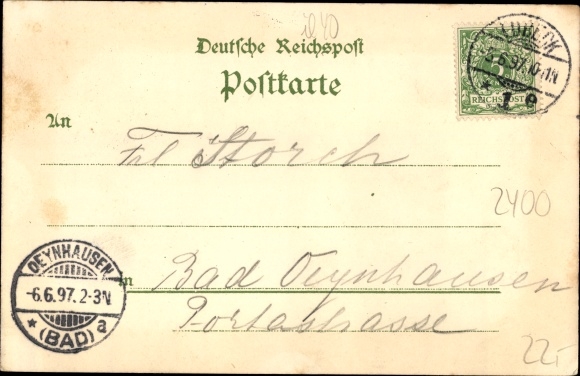 Deutsche Reichspost
Postkarte
LÜBECK
5.6.97.10-11N
* 1 e
5
REICHSPOST
An
Frl Storch
2400
OEYNHAUSEN
-6.6.97.2-3N
* (BAD) a
in Bad Oeynhausen
Portastrasse
22,-